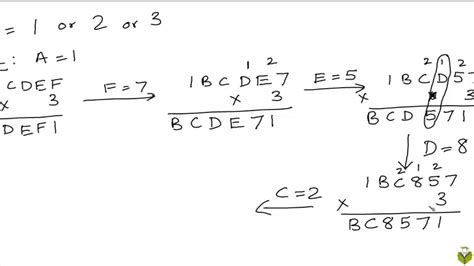 = 1 or 2 or 3
: A = 1
CDEF
x 3
DEF1
F = 7
1 2
1BCDE7
x 3
BCDE71
E = 5
2 1 2
1BCD57
x 3
BCD571
D = 8
2 1 2
1BC857
x 3
BC8571
C = 2